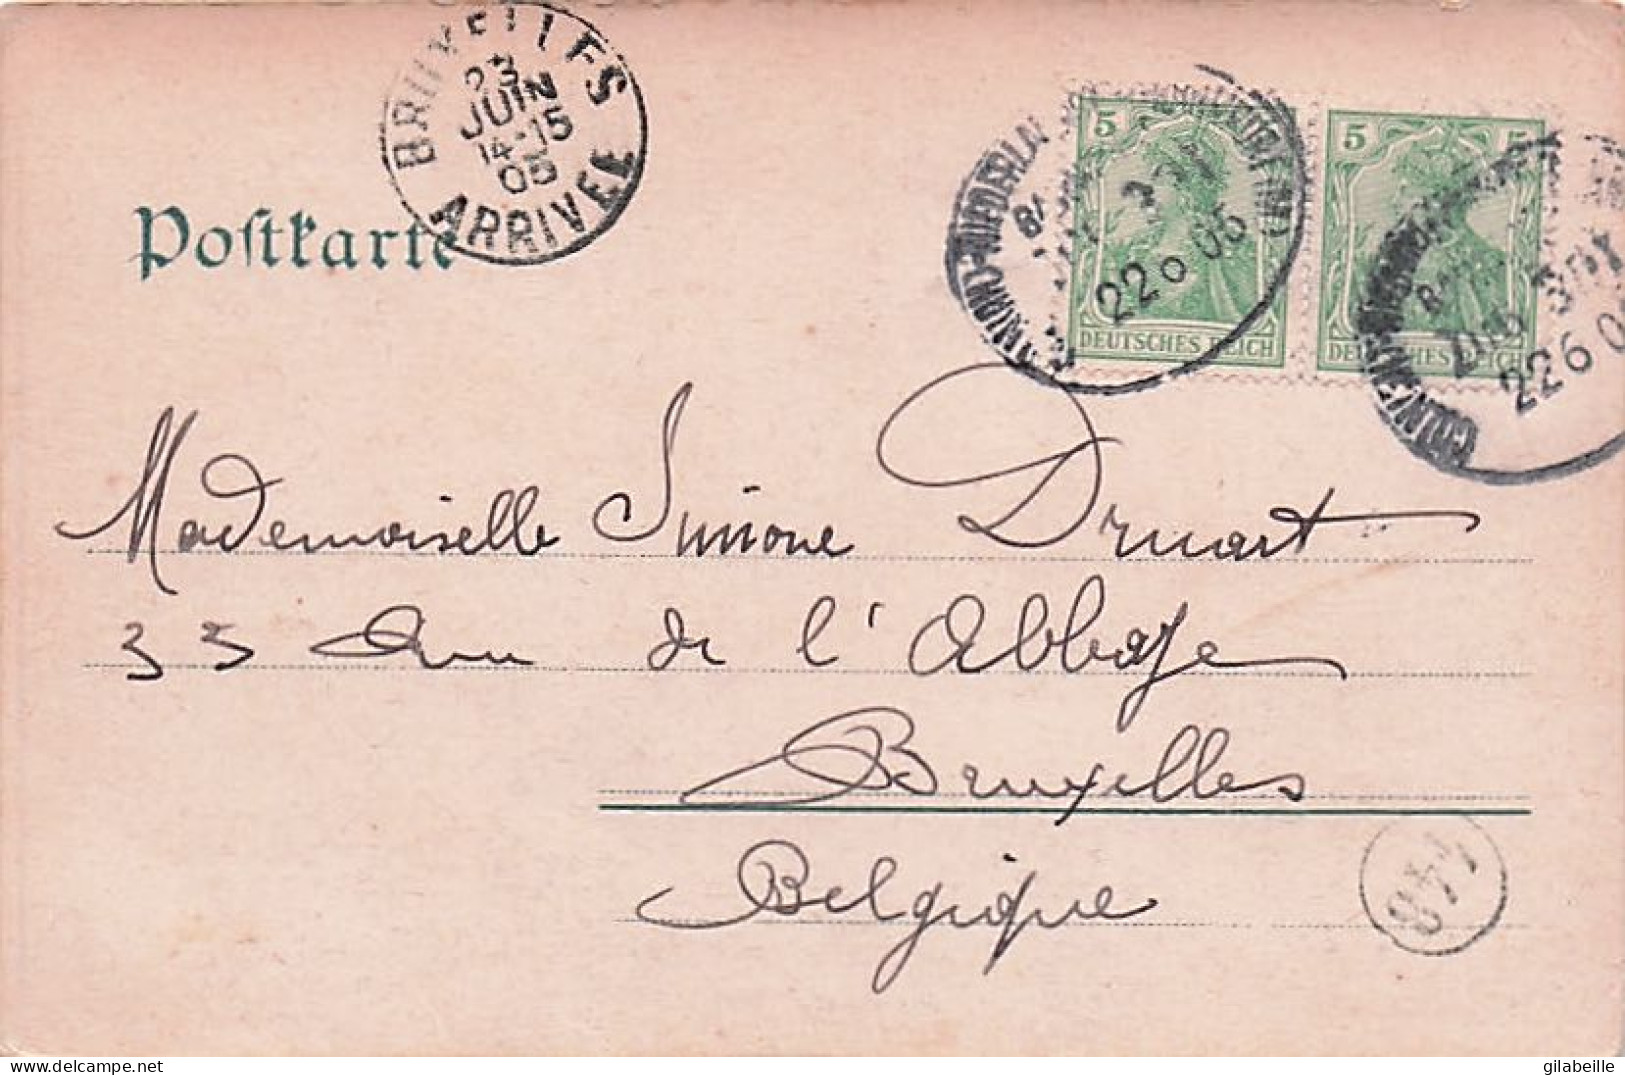 BRUXELLES
23
JUIN
14-15
05
ARRIVEE
Postkarte
5 5 5
DEUTSCHES REICH
DEUTSCHES REICH
22 6 05
22 6 0
Mademoiselle Simone Druart
33 Rue de l'Abbaye
Bruxelles
Belgique
448
gilabeille